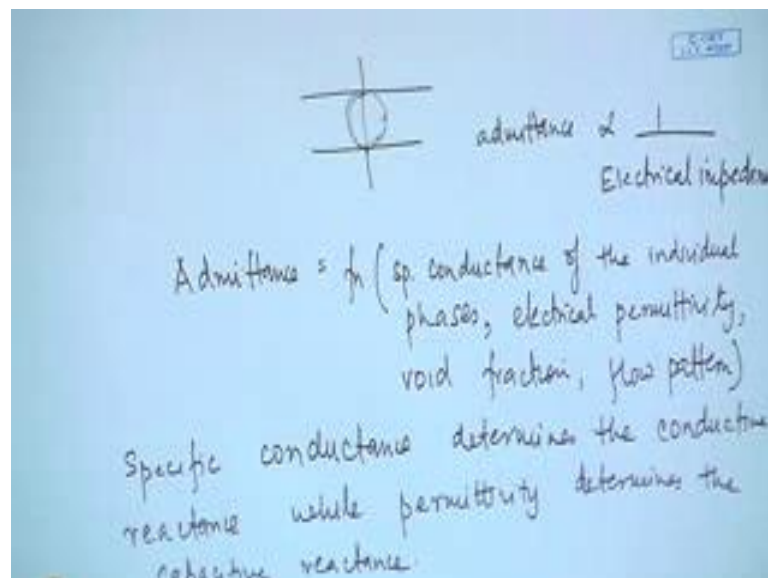 admittance α 1
Electrical impedan
Admittance = fn (sp. conductance of the individual
phases, electrical permittivity,
void fraction, flow pattern)
Specific conductance determines the conductive
reactance while permittivity determines the
capacitive reactance.